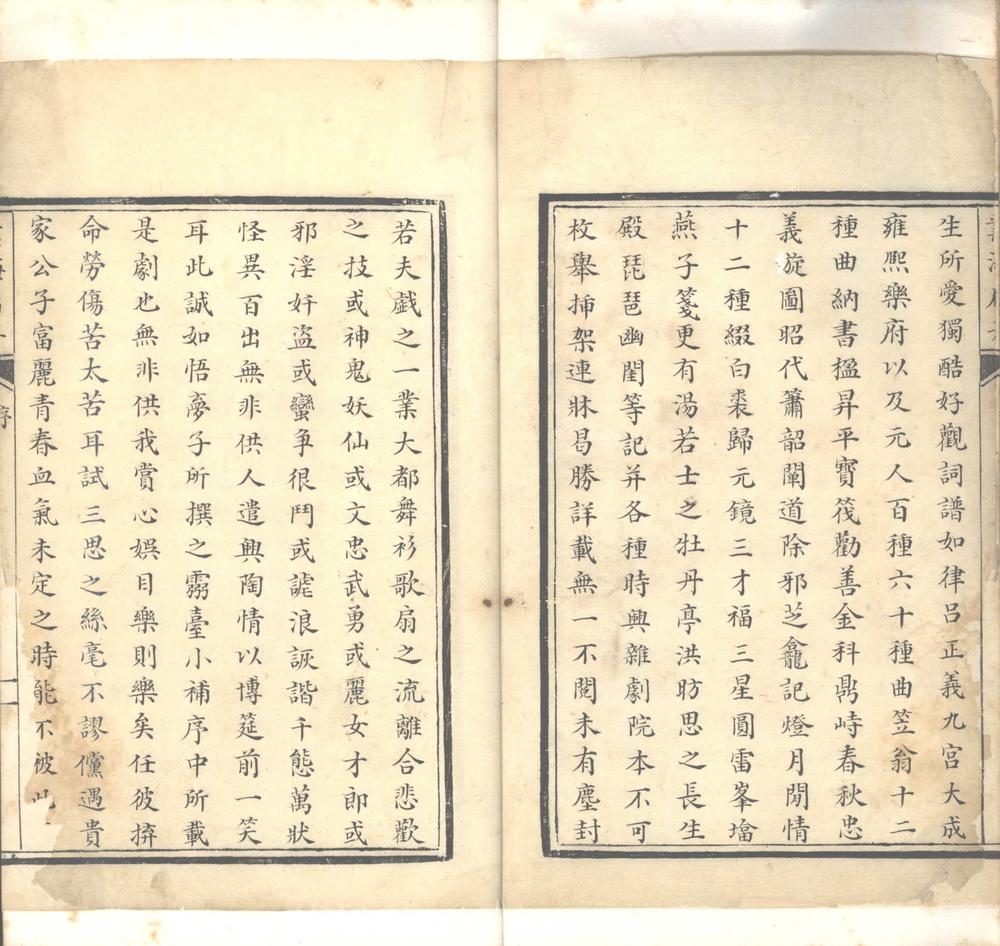 生所愛獨酷好觀詞譜如律呂正義九宫大成
雍熈樂府以及元人百種六十種曲笠翁十二
種曲納書楹昇平寳筏勸善金科鼎峙春秋忠
義旋圖昭代簫韶闡道除邪芝龕記燈月閒情
十二種綴白裘歸元鏡三才福三星圓雷峯墖
燕子箋更有湯若士之牡丹亭洪昉思之長生
殿琵琶幽閨等記并各種時興雜劇院本不可
枚舉挿架連牀曷勝詳載無一不閱未有塵封
若夫戲之一業大都舞衫歌扇之流離合悲歡
之技或神鬼妖仙或文忠武勇或麗女才郎或
邪淫奸盗或蠻争很鬥或謔浪詼諧千態萬狀
怪異百出無非供人遣興陶情以博筵前一笑
耳此誠如悟夢子所撰之霧臺小補序中所載
是劇也無非供我賞心娯目樂則樂矣任彼擠
命勞傷苦太苦耳試三思之絲毫不謬儻遇貴
家公子富麗青春血氣未定之時能不被此
序
二